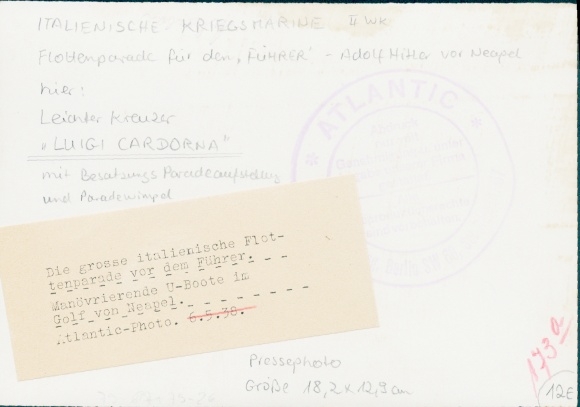 ITALIENISCHE KRIEGSMARINE II WK
Flottenparade für den „FÜHRER" - Adolf Hitler vor Neapel
hier:
Leichter Kreuzer
„LUIGI CARDORNA"
mit Besatzungs Paradeaufstellung
und Paradewimpel
* ATLANTIC *
Die grosse italienische Flot-
tenparade vor dem Führer.
Manüvrierende U-Boote im
Golf von Neapel.
Atlantic-Photo. 6.5.38.
Pressephoto
Größe 18,2 x 12,9 cm
173a
12E